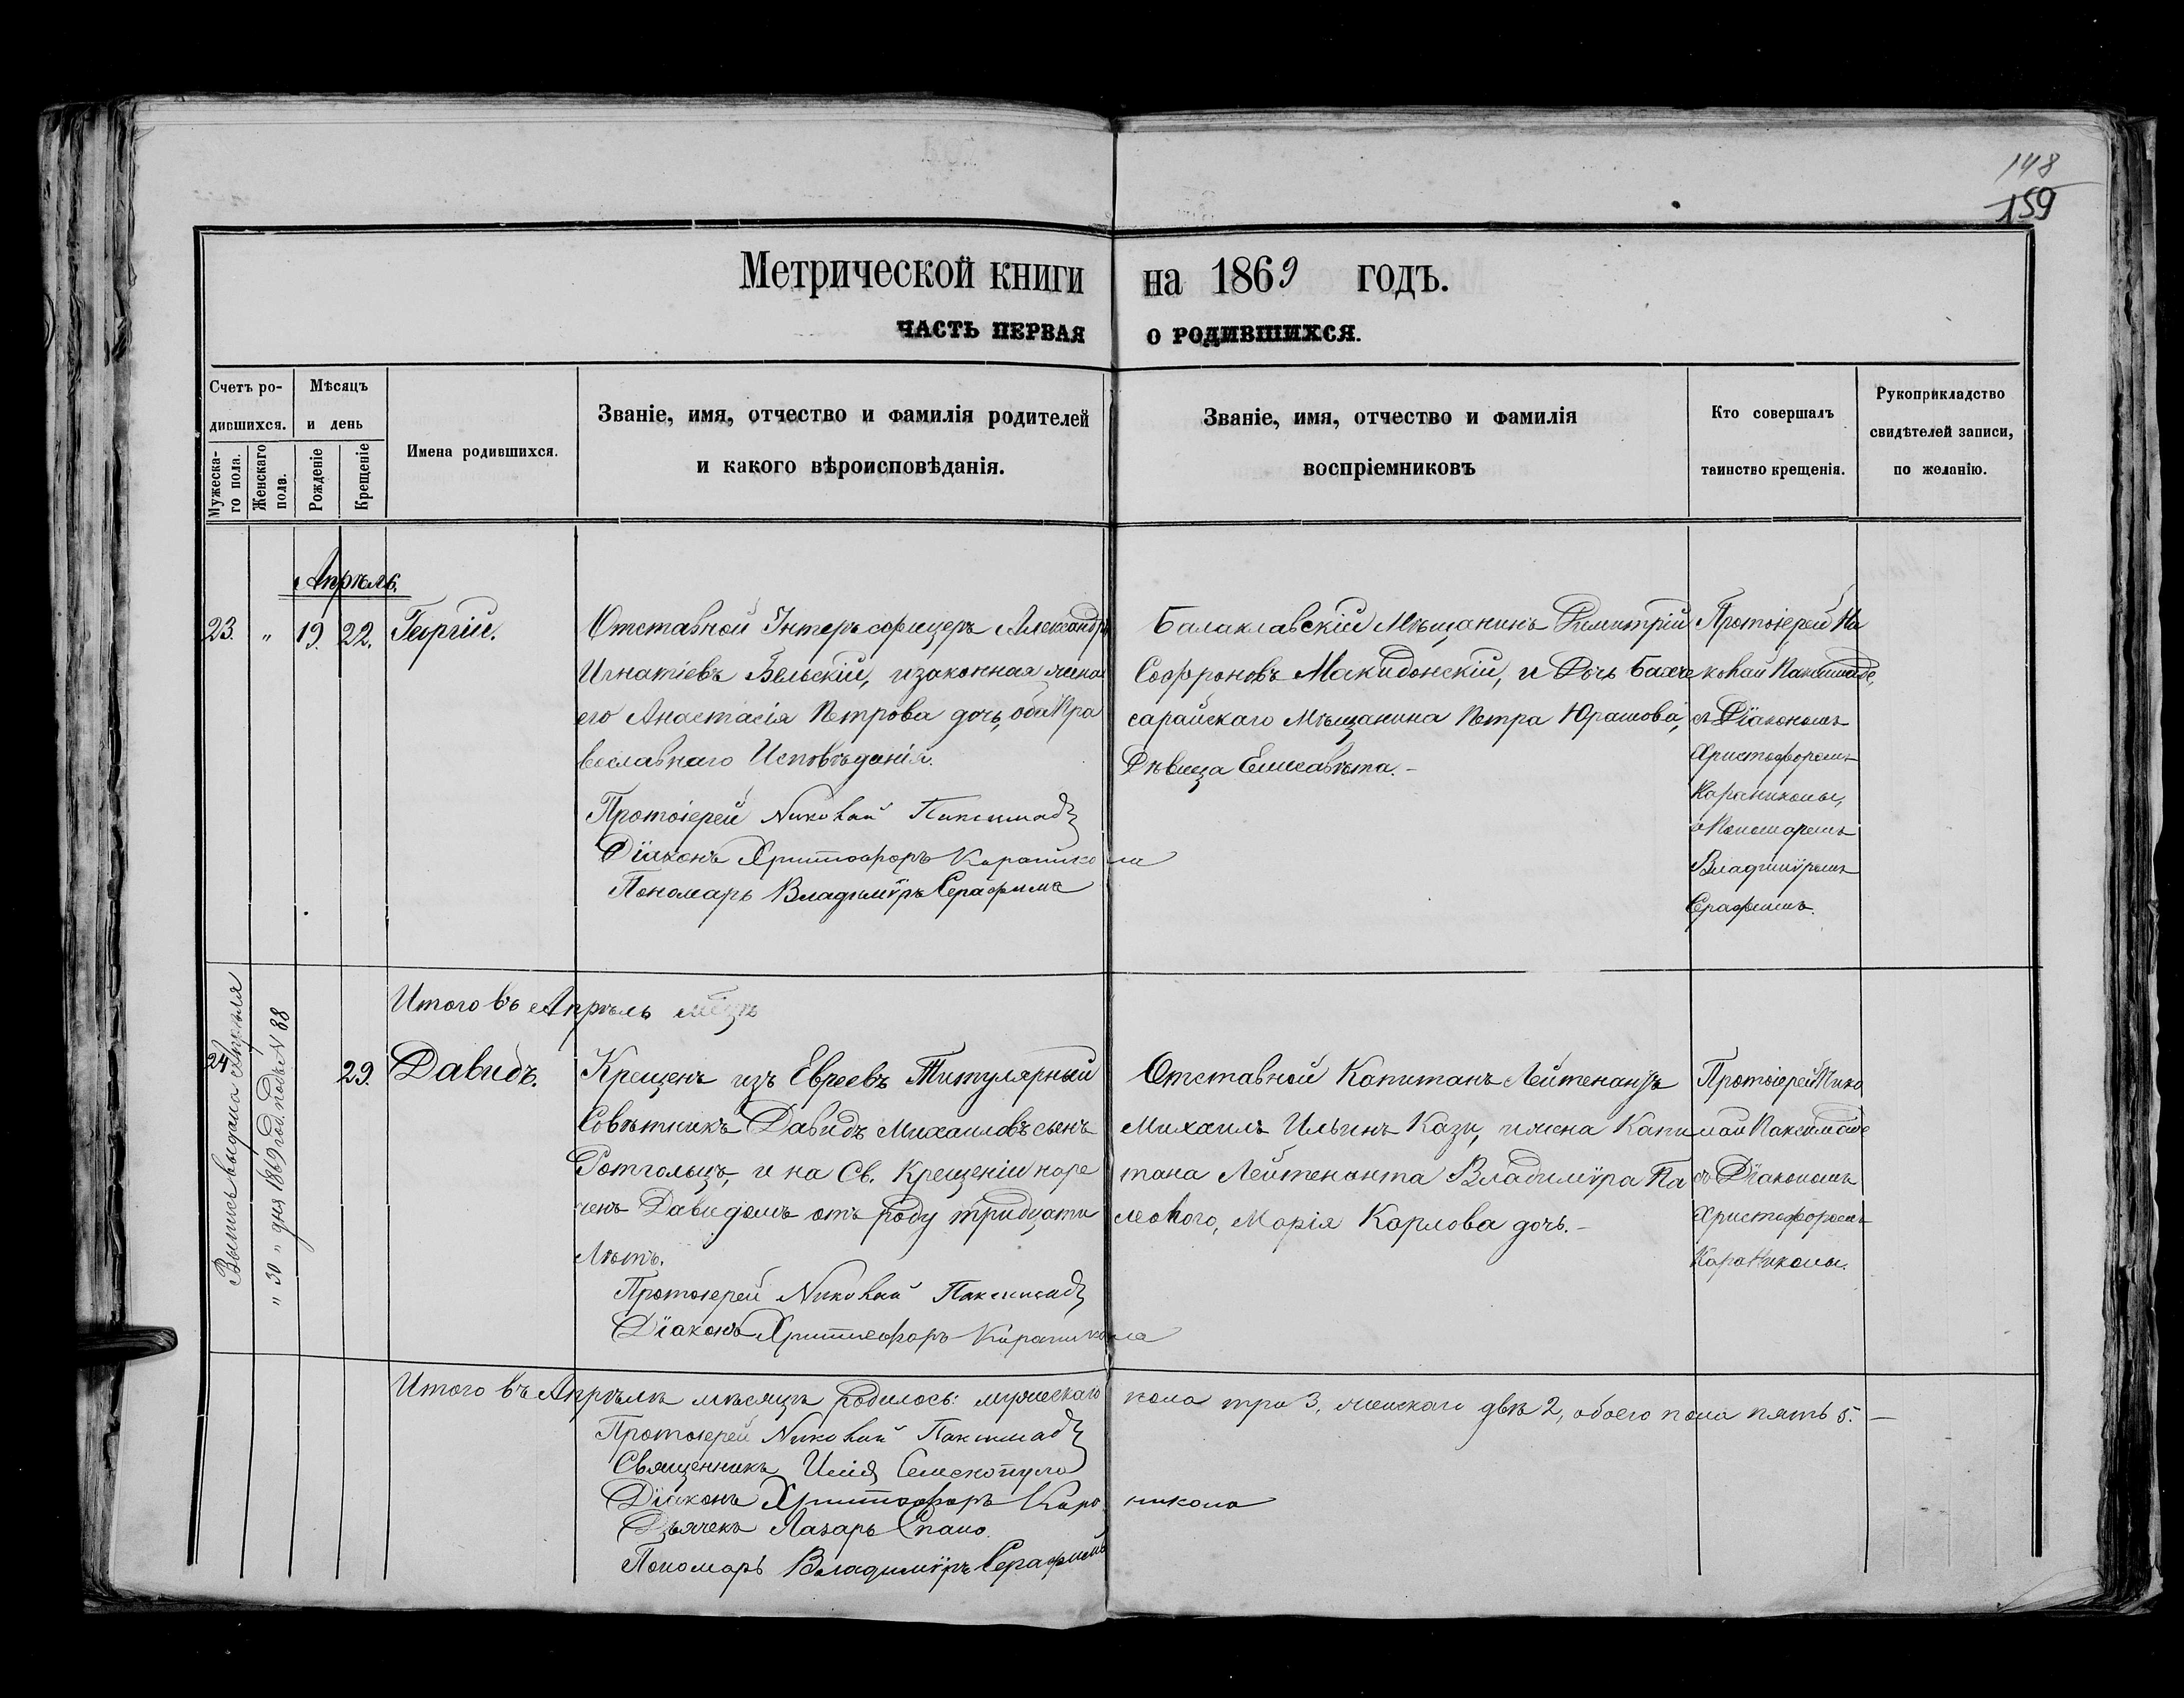 148
159
Метрической книги на 1869 годъ.
ЧАСТЬ ПЕРВАЯ О РОДИВШИХСЯ.
Счетъ ро-
дившихся.
Мужеска-
го пола.
Женскаго
пола.
Мѣсяцъ
и день
Рожденіе
Крещеніе
Имена родившихся.
Званіе, имя, отчество и фамилія родителей
и какого вѣроисповѣданія.
Званіе, имя, отчество и фамилія
воспріемниковъ
Кто совершалъ
таинство крещенія.
Рукоприкладство
свидѣтелей записи,
по желанію.
Апрѣль.
23. " 19. 22. Георгій.
Отставной Унтеръ офицеръ Александръ
Игнатіевъ Бельскій, и законная жена
его Анастасія Петрова дочь, оба Пра
вославнаго Исповѣданія.
Протоіерей Николай Паксимадъ
Діаконъ Христофоръ Караникола
Пономарь Владиміръ Серафимъ
Балаклавскій Мѣщанинъ Димитрій
Софроновъ Македонскій, и Дочь Бахче
сарайскаго Мѣщанина Петра Юрашова,
Дѣвица Елисавета.-
Протоіерей Ни
колай Паксимаде,
съ Діакономъ
Христофоромъ
Караниколы,
и Пономаремъ
Владиміромъ
Серафимъ.
Итого въ Апрѣль мѣсяцъ
24 29. Давидъ.
Выпись выдана Апрѣля
" 30 " дня 1869 год. подъ N 88
Крещенъ изъ Евреевъ Титулярный
Совѣтникъ Давидъ Михаиловъ сынъ
Ротгольцъ, и на Св. Крещеніи наре
ченъ Давидомъ отъ роду тридцати
Лѣтъ.
Протоіерей Николай Паксимадъ
Діаконъ Христофоръ Караникола
Отставной Капитанъ Лейтенантъ
Михаилъ Ильинъ Кази, и жена Капи
тана Лейтенанта Владиміра Па
леолого, Марія Карлова дочь.-
Протоіерей Нико
лай Паксимаде
съ Діакономъ
Христофоромъ
Караниколы.
Итого въ Апрѣлѣ мѣсяцѣ родилось: мужескаго пола три 3, женскаго двѣ 2, обоего пола пять 5. -
Протоіерей Николай Паксимадъ
Священникъ Илія
Діаконъ Христофоръ Караникола
Дьячекъ Лазарь Спано.
Пономарь Владиміръ Серафимъ